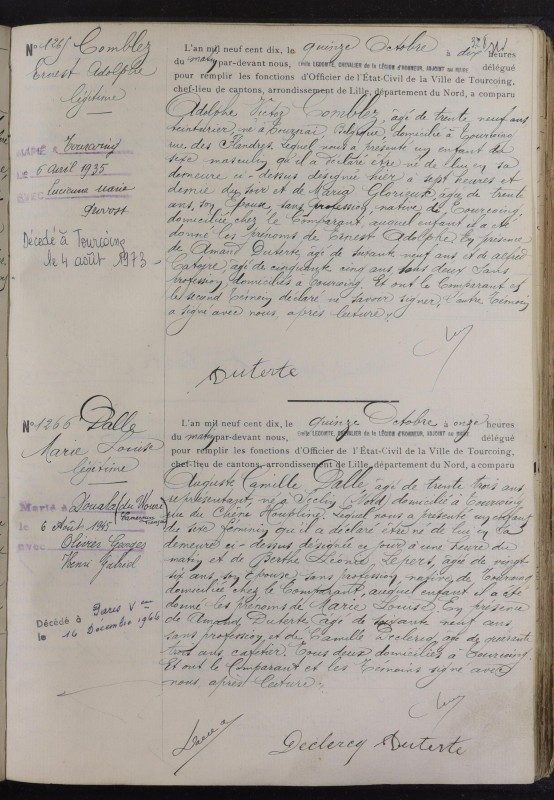 N° 1265 Comblez
Ernest Adolphe
légitime
MARIÉ à Tourcoing
LE 6 avril 1935
AVEC Lucienne Marie
Prevost
Décédé à Tourcoing
le 4 août 1973
L'an mil neuf cent dix, le quinze Octobre à dix heures
du matin par-devant nous, LECOMTE, CHEVALIER de la LÉGION d'HONNEUR, ADJOINT au MAIRE délégué
pour remplir les fonctions d'Officier de l'État-Civil de la Ville de Tourcoing,
chef-lieu de cantons, arrondissement de Lille, département du Nord, a comparu
Adolphe Victor Comblez, âgé de trente neuf ans
teinturier, né à Tournai, Belgique, domicilié à Tourcoing
rue des Flandres, lequel nous a présenté un enfant du
sexe masculin qu'il a déclaré être né de lui en sa
demeure ci-dessus désignée hier à sept heures et
demie du soir et de Maria Glorieux, âgée de trente
ans, son épouse, sans profession, native de Tourcoing,
domiciliée chez le Comparant auquel enfant il a été
donné les prénoms de Ernest Adolphe. En présence
de Amand Duterte, âgé de soixante neuf ans et de Alfred
Catoire, âgé de cinquante cinq ans, tous deux sans
profession, domiciliés à Tourcoing. Et ont le Comparant et
le second Témoin déclaré ne savoir signer, l'autre Témoin
a signé avec nous, après lecture.
Duterte
N° 1266 Dalle
Marie Louise
légitime
Marié à Douala du Wouri
(Cameroun français)
le 6 Août 1945
avec Olivier Georges
Henri Gabriel
Décédé à Paris V eme
le 16 Décembre 1966
L'an mil neuf cent dix, le quinze Octobre à onze heures
du matin par-devant nous, LECOMTE, CHEVALIER de la LÉGION d'HONNEUR, ADJOINT au MAIRE délégué
pour remplir les fonctions d'Officier de l'État-Civil de la Ville de Tourcoing,
chef-lieu de cantons, arrondissement de Lille, département du Nord, a comparu
Auguste Camille Dalle, âgé de trente trois ans
représentant, né à Seclin, Nord, domicilié à Tourcoing
rue du Chêne Houpline, lequel nous a présenté un enfant
du sexe féminin qu'il a déclaré être né de lui en sa
demeure ci-dessus désignée ce jour à une heure du
matin et de Berthe Léonie Lepers, âgée de vingt
six ans, son épouse, sans profession, native de Tourcoing
domiciliée chez le Comparant, auquel enfant il a été
donné les prénoms de Marie Louise. En présence
de Amand Duterte, âgé de soixante neuf ans,
sans profession et de Camille Declercq, âgé de quarante
trois ans, cafetier, tous deux domiciliés à Tourcoing
Et ont le Comparant et les Témoins signé avec
nous, après lecture.
Declercq Duterte